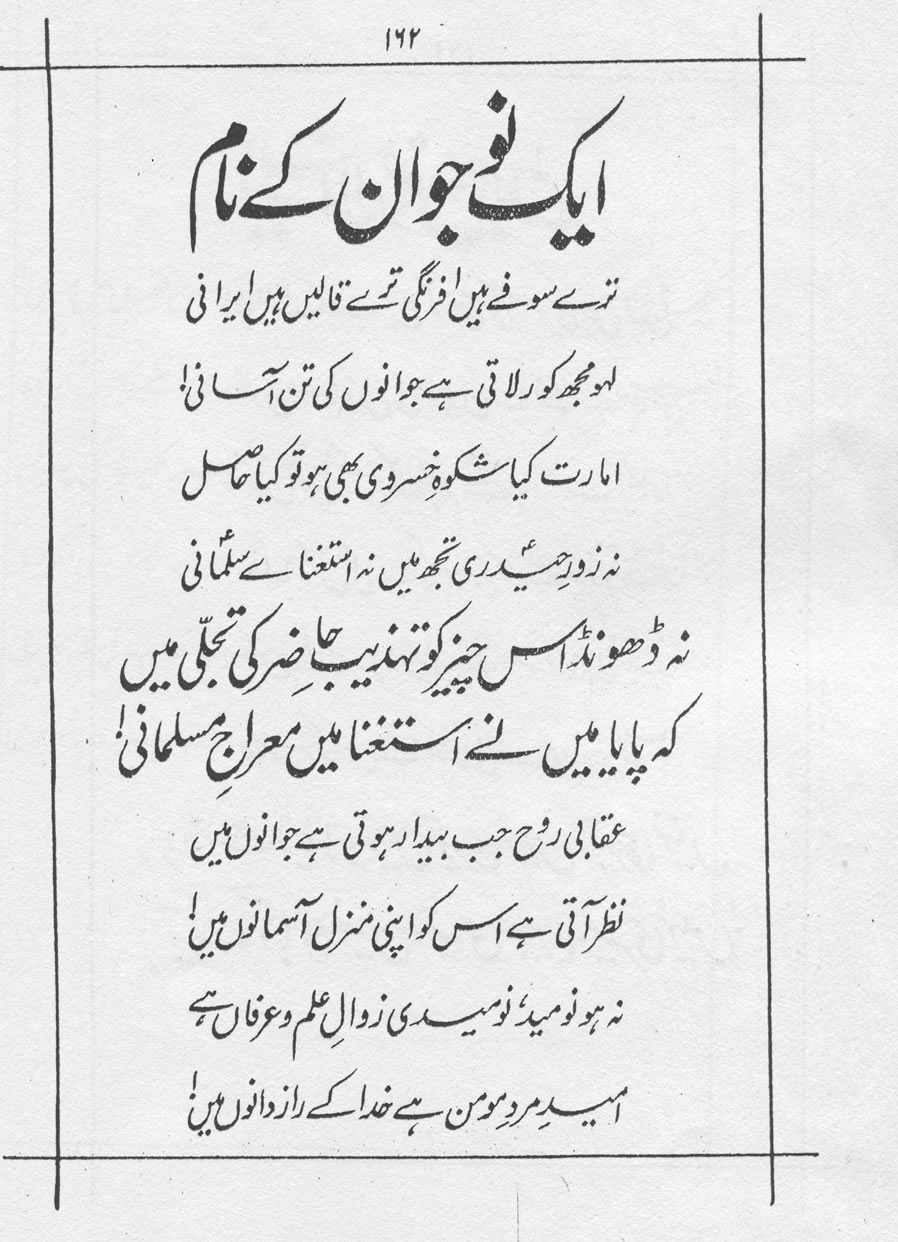 ۱۶۲
ایک نوجوان کے نام
ترے سوفے ہیں افرنگی ترے قالیں ہیں ایرانی
لہو مجھ کو رلاتی ہے جوانوں کی تن آسانی!
امارت کیا شکوہِ خسروی بھی ہو تو کیا حاصل
نہ زورِ حیدریؑ تجھ میں نہ استغناے سلمانیؑ
نہ ڈھونڈ اس چیز کو تہذیبِ حاضر کی تجلّی میں
کہ پایا میں نے استغنا میں معراجِ مسلمانی!
عقابی روح جب بیدار ہوتی ہے جوانوں میں
نظر آتی ہے اس کو اپنی منزل آسمانوں میں!
نہ ہو نومید، نومیدی زوالِ علم و عرفاں ہے
امیدِ مردِ مومن ہے خدا کے رازدانوں میں!